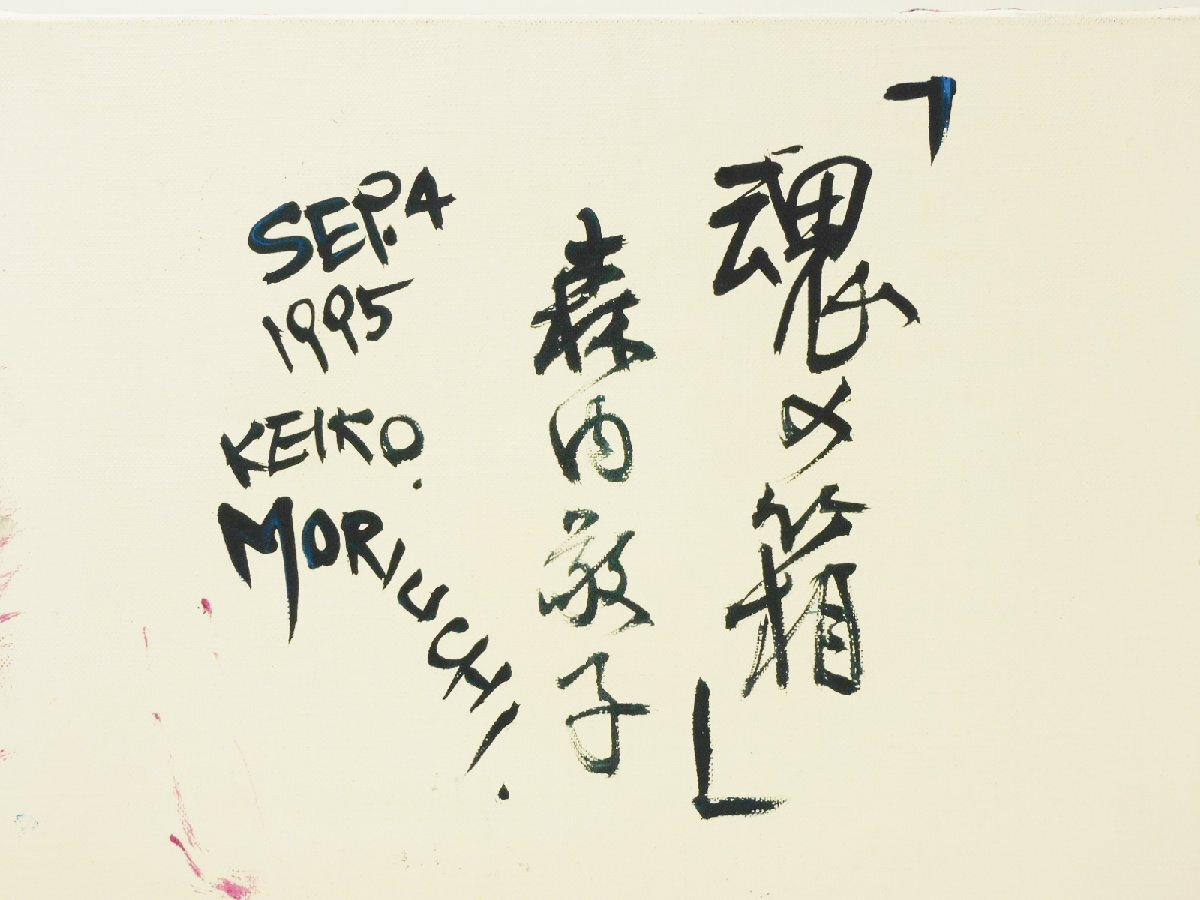 「魂の箱」
森内敬子
SEP.4
1995
KEIKO.
MORIUCHI.